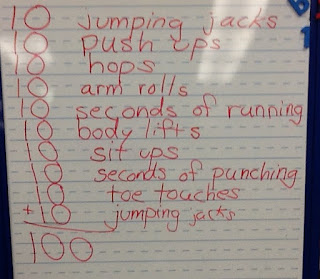 10 jumping jacks
10 push ups
10 hops
10 arm rolls
10 seconds of running
10 body lifts
10 sit ups
10 seconds of punching
10 toe touches
+10 jumping jacks
100